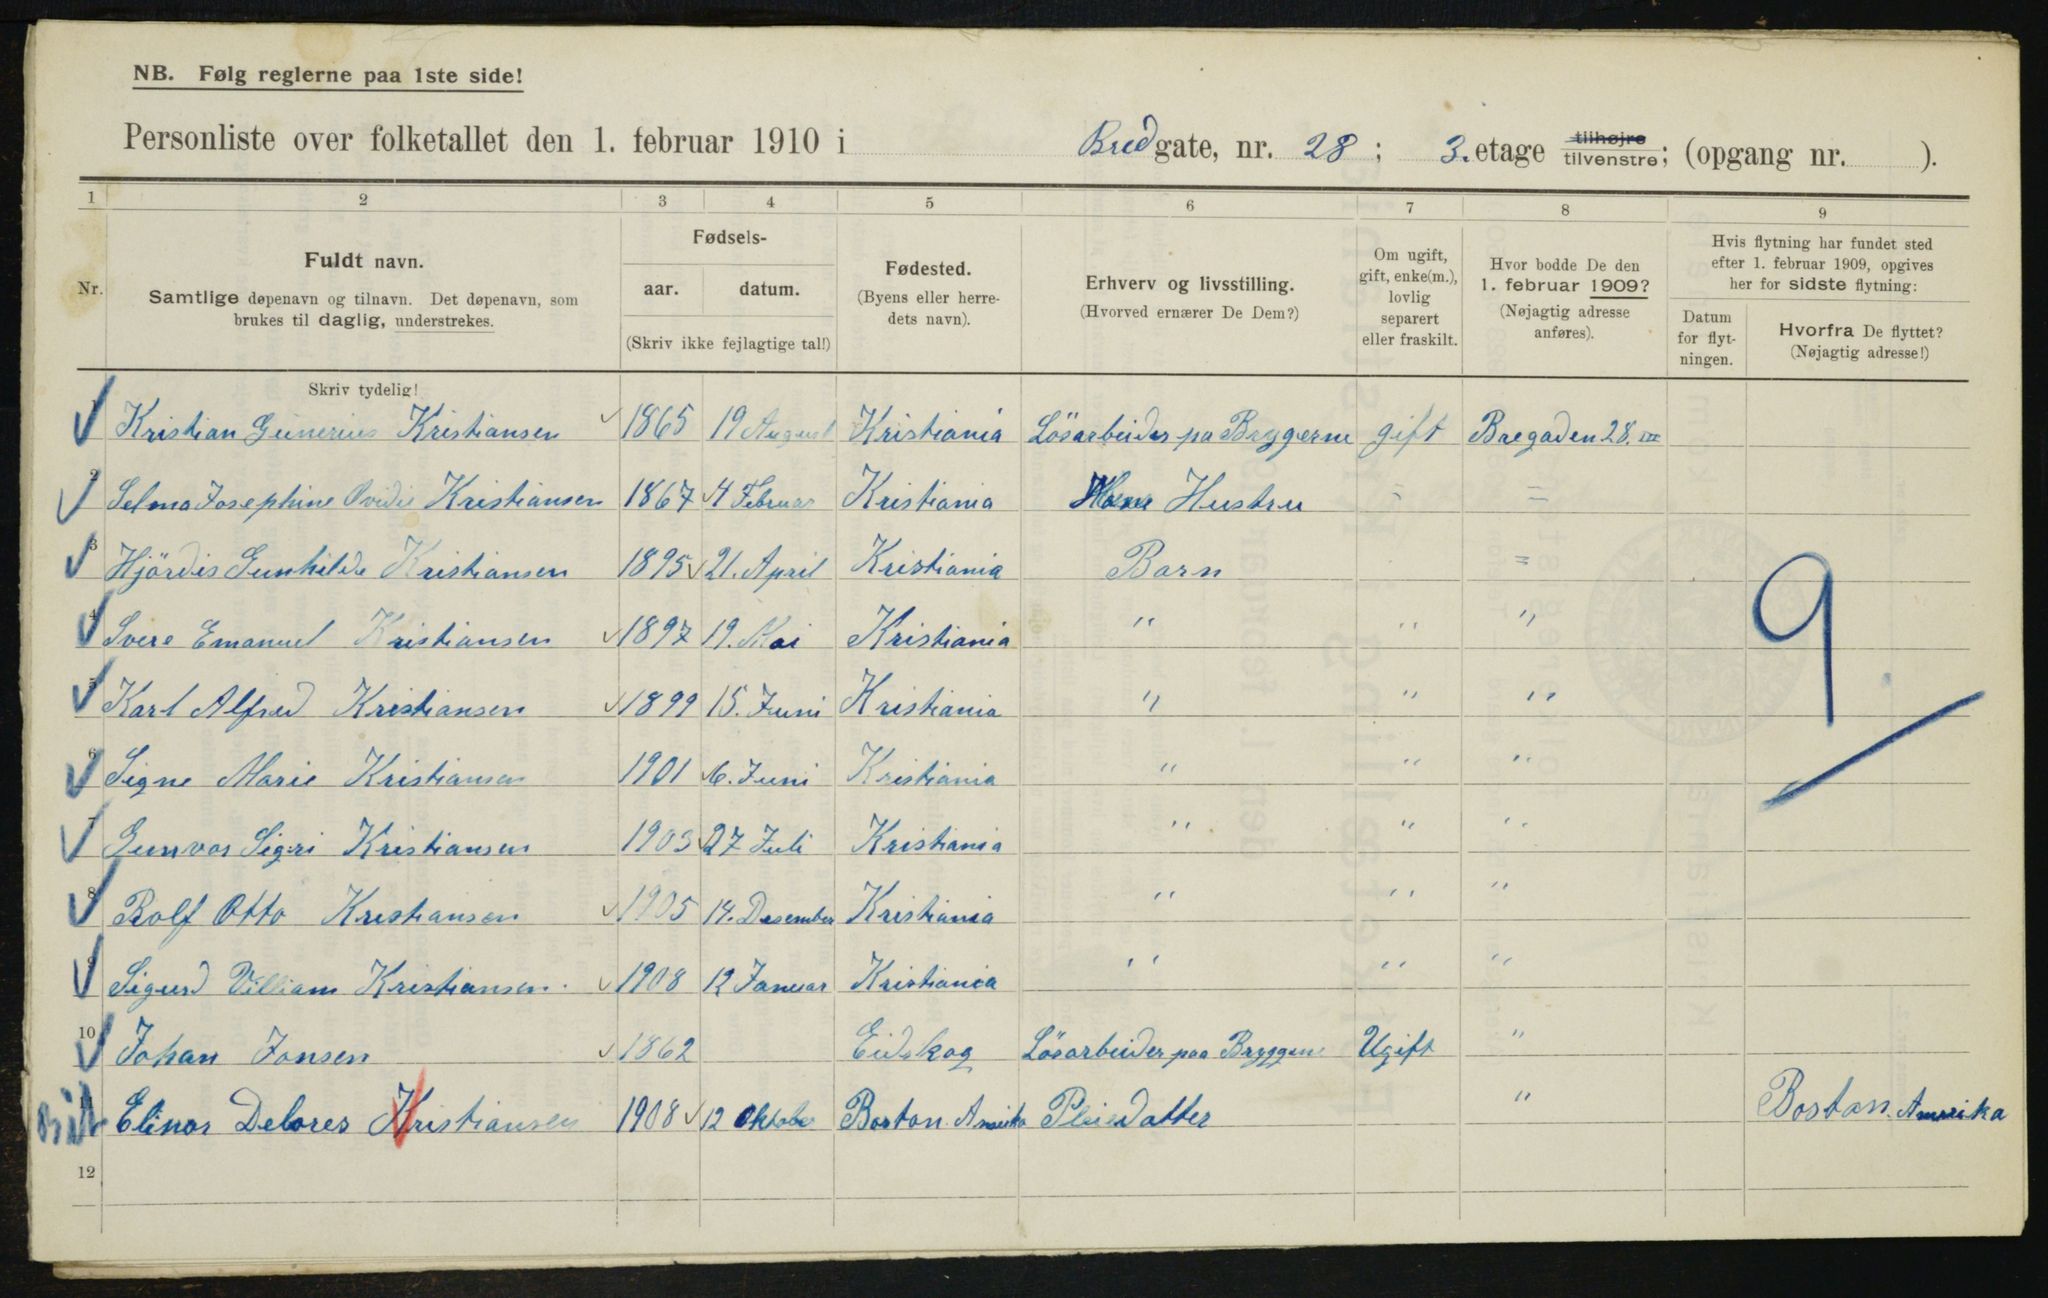 NB. Følg reglerne paa 1ste side!
Personliste over folketallet den 1. februar 1910 i Bredgate, nr. 28; 3. etage tilhøjre tilvenstre; (opgang nr. ).
1 2 3 4 5 6 7 8 9
Nr.
Fuldt navn.
Samtlige døpenavn og tilnavn. Det døpenavn, som
brukes til daglig, understrekes.
Fødsels-
aar. datum.
(Skriv ikke fejlagtige tal!)
Fødested.
(Byens eller herre-
dets navn).
Erhverv og livsstilling.
(Hvorved ernærer De Dem?)
Om ugift,
gift, enke(m.),
lovlig
separert
eller fraskilt.
Hvor bodde De den
1. februar 1909?
(Nøjagtig adresse
anføres).
Hvis flytning har fundet sted
efter 1. februar 1909, opgives
her for sidste flytning:
Datum
for flyt-
ningen.
Hvorfra De flyttet?
(Nøjagtig adresse!)
Skriv tydelig!
1 Kristian Gunerius Kristiansen 1865 19 August Kristiania Lösarbeider pa Bryggerne gift Bregaden 28. III
2 Selma Josephine Ovidie Kristiansen 1867 4 Februar Kristiania Hustru = =
3 Hjördis Gunhilde Kristiansen 1895 21. April Kristiania Barn =
4 Svere Emanuel Kristiansen 1897 19. Mai Kristiania " " "
5 Karl Alfred Kristiansen 1899 15. Juni Kristiania " " "
6 Signe Marie Kristiansen 1901 6. Juni Kristiania " " "
7 Gunvor Sigri Kristiansen 1903 27 Juli Kristiania " " "
8 Rolf Otto Kristiansen 1905 14. Desember Kristiania " " "
9 Sigurd Villiam Kristiansen. 1908 12 Januar Kristiania " " "
10 Johan Jansen 1862 Eidskog Lösarbeider paa Bryggene Ugift "
11 Elinor Delores Kristiansen 1908 12 Oktober Boston Amerika Pleiedatter " Boston. Amerika
12
9